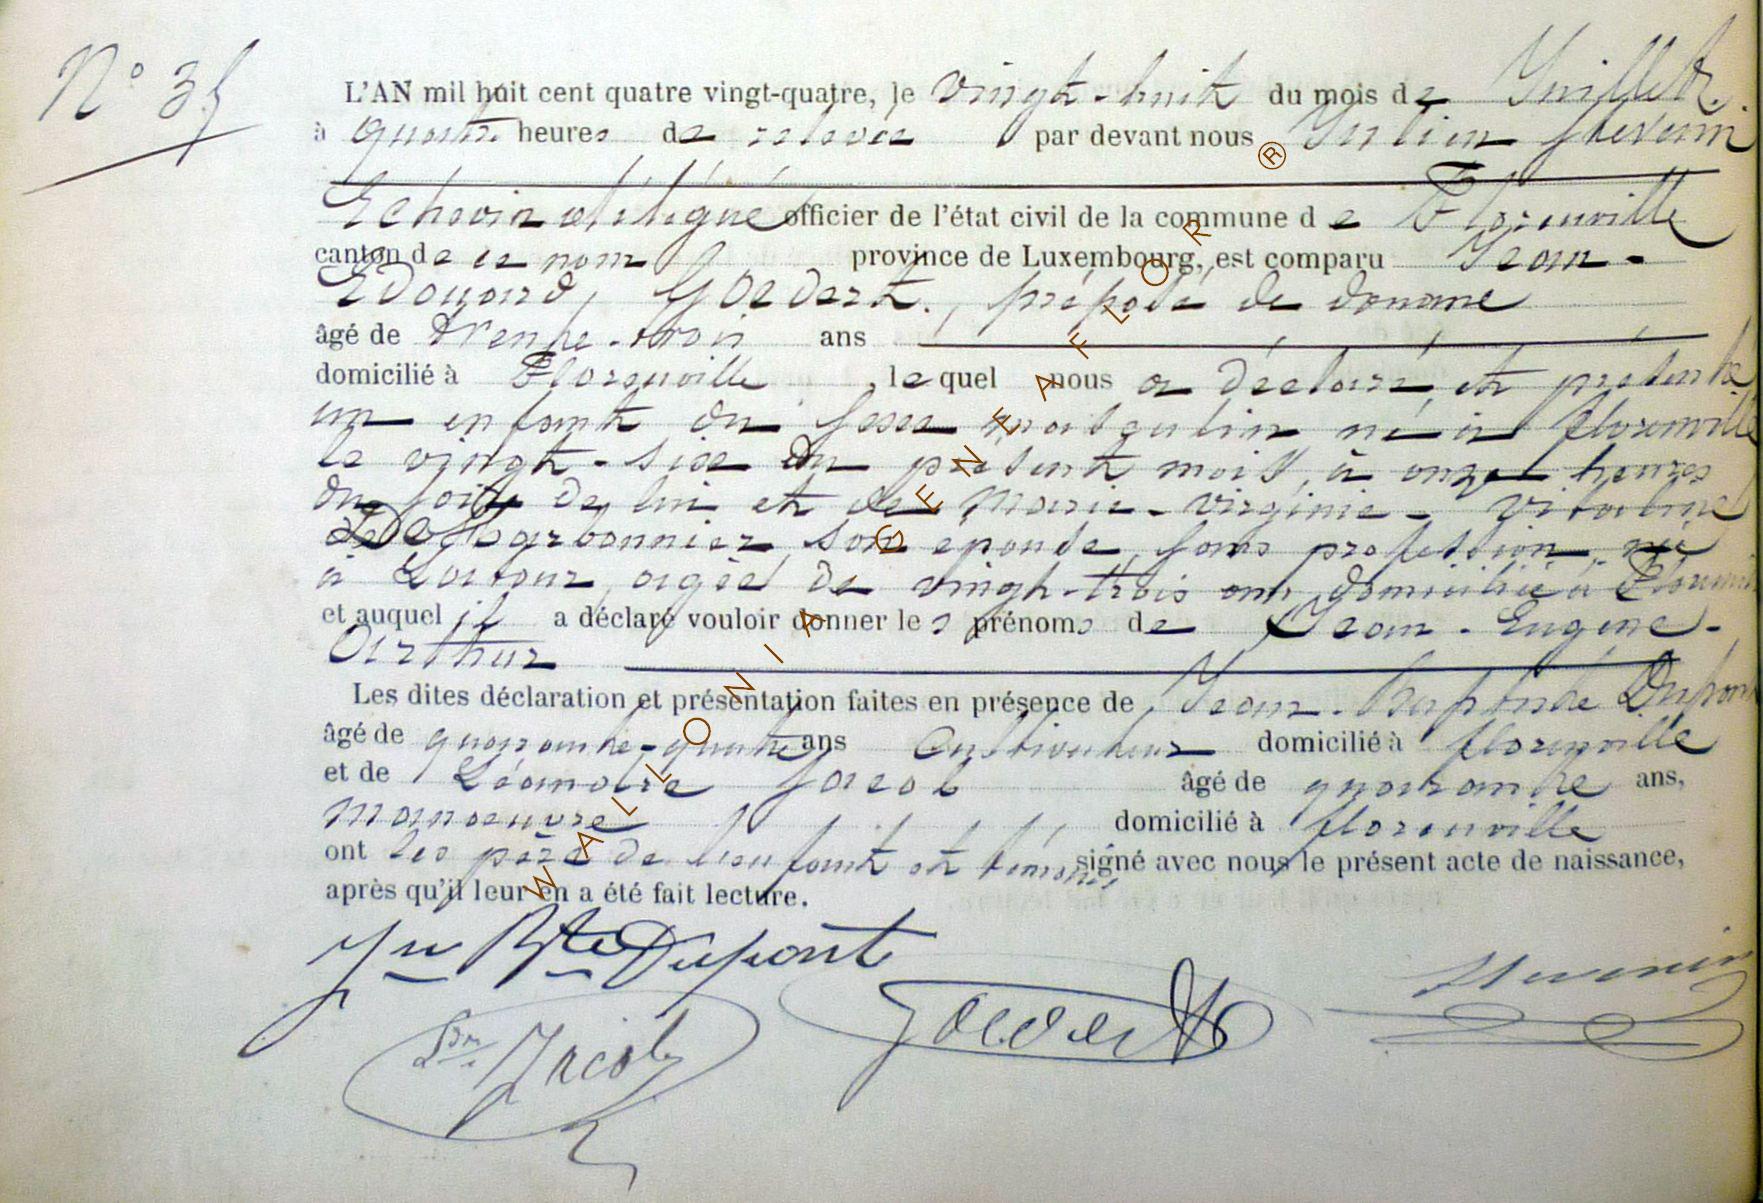 N° 35
L'AN mil huit cent quatre vingt-quatre, le vingt-huit du mois de Juillet.
à quatre heures de relevée par devant nous Julien Thevenin
Echevin délégué officier de l'état civil de la commune de Florenville
canton de ce nom province de Luxembourg, est comparu Jean-
Edouard, Goedert, préposé de douane
âgé de trente-trois ans
domicilié à Florenville, lequel nous a déclaré et présenté
un enfant du sexe masculin né à florenville
le vingt-six du présent mois, à onze heures
du soir de lui et de Marie-virginie-
son epouse, sans profession née
à agée de vingt-trois ans, domiciliée à
et auquel il a déclaré vouloir donner les prénoms de Jean-Eugène-
Arthur
Les dites déclaration et présentation faites en présence de Jean-baptiste Dupont
âgé de quarante-quatre ans Cultivateur domicilié à florenville
et de Léandre Jacob âgé de quarante ans,
manoeuvre domicilié à florenville
ont les père de l'enfant et témoins signé avec nous le présent acte de naissance,
après qu'il leur en a été fait lecture.
Jn Bte Dupont
Thevenin
Goedert
Ldre Jacob
WALLONIA GENEAFLOR ®